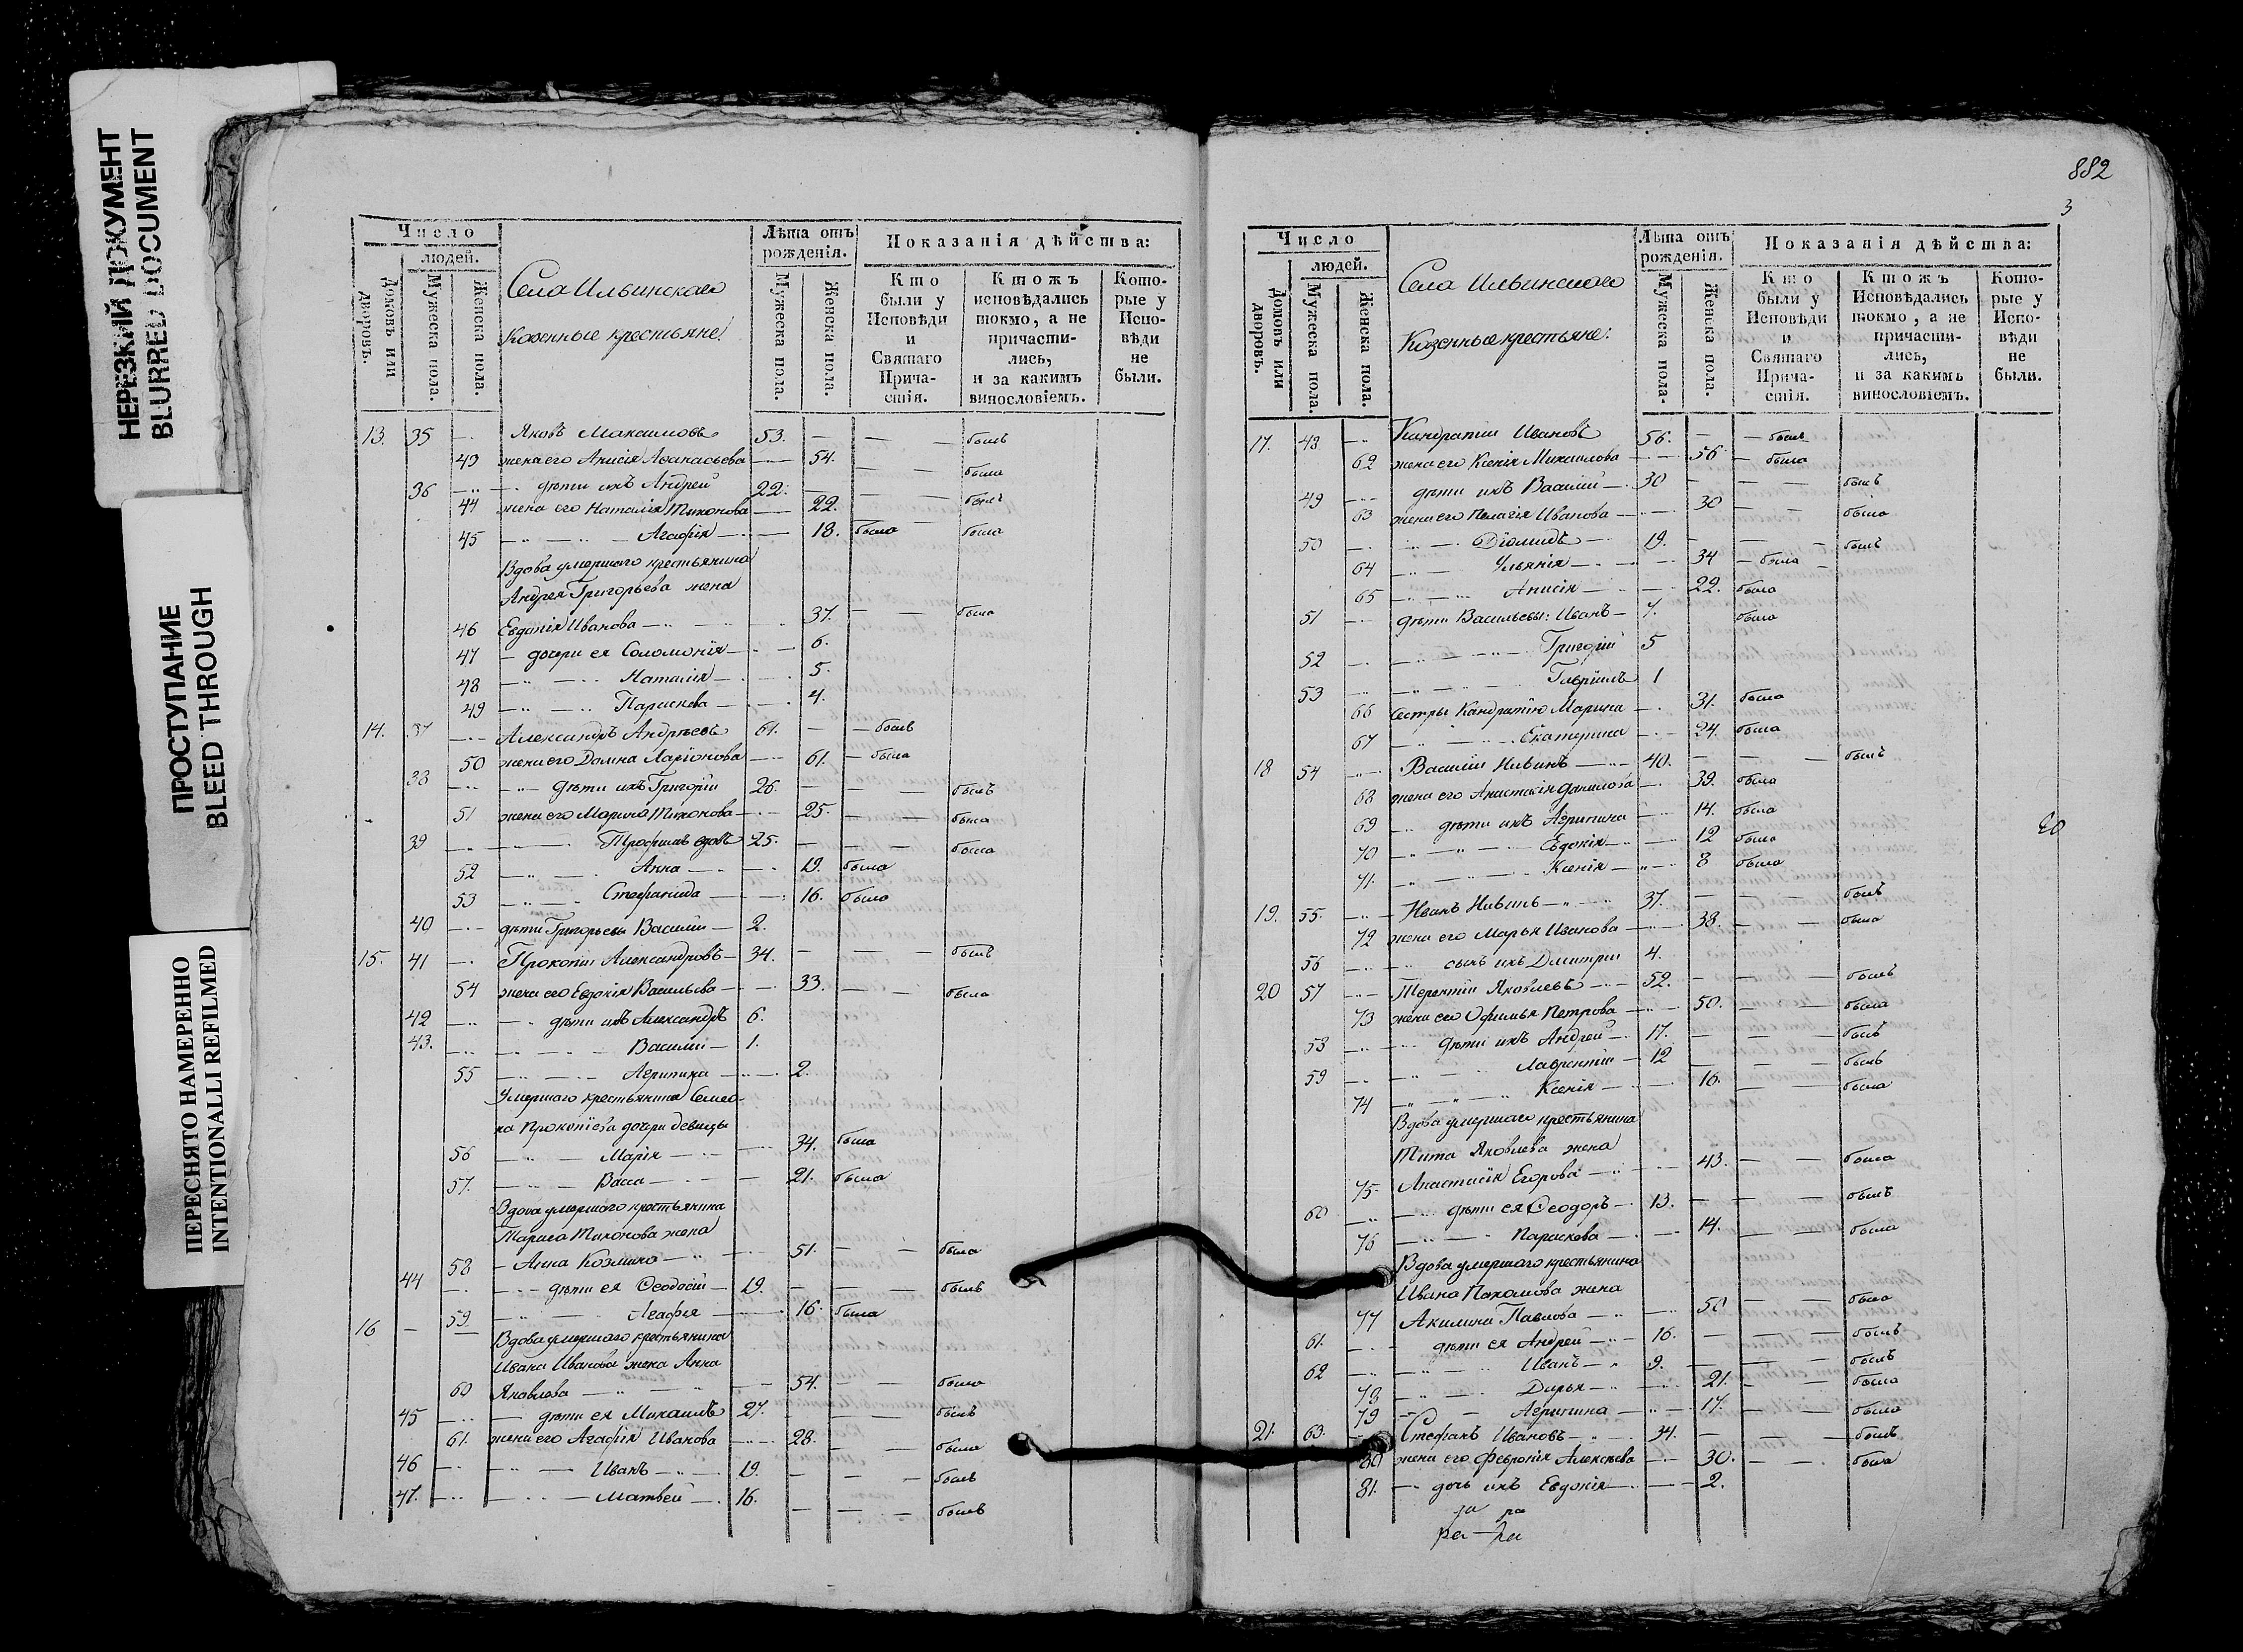 НЕРЕЗКИЙ ДОКУМЕНТ
BLURRED DOCUMENT
ПРОСТУПАНИЕ
BLEED THROUGH
ПЕРЕСНЯТО НАМЕРЕННО
INTENTIONALLI REFILMED
Число
людей.
Домовъ или дворовъ.
Мужеска пола.
Женска пола.
Села Ильинскаго
Казенные крестьяне:
Лѣта отъ рожденія.
Мужеска пола.
Женска пола.
Показанія дѣйства:
Кто были у Исповѣди и Святаго Прича- стія.
Ктожъ исповѣдались токмо, а не причасти- лись, и за какимъ винословіемъ.
Кото- рые у Испо- вѣди не были.
13. 35 Яковъ Максимовъ 53. былъ
43 жена его Анисія Афанасьева 54. была
36 дѣти ихъ Андрей 22. былъ
44 жена его Наталія Тихонова 22.
45 Агафія 18. была была
Вдова умершаго крестьянина
Андрея Григорьева жена
46 Евдокія Иванова 37. была
47 дочери ея Соломонія 6.
48 Наталія 5.
49 Параскева 4.
14. 37 Александръ Андреевъ 61. былъ
50 жена его Домна Ларіонова 61. была
38 дѣти ихъ Григорій 26. былъ
51 жена его Марина Тихонова 25. была
39 Трофимъ вдовъ 25. была
52 Анна 19. была
53 Стефанида 16. была
40 дѣти Григорьевы Василій 2.
15. 41 Прокопій Александровъ 34. былъ
54 жена его Евдокія Васильева 33. была
42 дѣти ихъ Александръ 6.
43. Василій 1.
55 Агрипина 2.
Умершаго крестьянина Семео-
на Прокопіева дочери девицы
56 Марія 34. была
57. Васса 21. была
Вдова умершаго крестьянина
Тараса Тихонова жена
58 Анна Козмина 51. была
44 дѣти ея Феодосій 19. былъ
59 Агафья 16. была
16 Вдова умершаго крестьянина
Ивана Иванова жена Анна
60 Яковлева 54. была
45 дѣти ея Михаилъ 27. былъ
61. жена его Агафія Иванова 28. была
46 Иванъ 19. былъ
47. Матвей 16. былъ
882
3
Число
людей.
Домовъ или дворовъ.
Мужеска пола.
Женска пола.
Села Ильинскаго
Казенные крестьяне:
Лѣта отъ рожденія.
Мужеска пола.
Женска пола.
Показанія дѣйства:
Кто были у Исповѣди и Святаго Прича- стія.
Ктожъ Исповѣдались токмо, а не причасти- лись, и за какимъ винословіемъ.
Кото- рые у Испо- вѣди не были.
17. 48 Кандратій Ивановъ 56. былъ
62 жена его Ксенія Михаилова 56. была
49 дѣти ихъ Василій 30 былъ
63 жена его Пелагія Иванова 30 была
50 Діомидъ 19. былъ
64 Ульянія 34 была
65 Анисія 22. была
51 дѣти Васильевы: Иванъ 7. была
52 Григорій 5
53 Гавріилъ 1
66 Сестры Кандратію Марина 31. была
67 Екатерина 24. была
18 54 Василій 40. былъ
68 жена его Анастасія Данилова 39. была
69 дѣти ихъ Агрипина 14. была
70 Евдокія 12 была
71. Ксенія 8 была
19. 55. Иванъ 37. былъ
72 жена его Марья Иванова 38. была
56 сынъ ихъ Дмитрій 4.
20 57 Терентій Яковлевъ 52. былъ
73 жена его Офимья Петрова 50. была
58 дѣти ихъ Андрей 17. былъ
59 Лаврентій 12 былъ
74 Ксенія 16. была
Вдова умершаго крестьянина
Тита Яковлева жена
75. Анастасія Егорова 43. была
60 дѣти ея Феодоръ 13. былъ
76 Параскова 14. была
Вдова умершаго крестьянина
Ивана Пахомова жена
77 Акилина Павлова 50 была
61. дѣти ея Андрей 16. былъ
62 Иванъ 9. былъ
78 Дарья 21. была
79 Агрипина 17. была
21. 63. Стефанъ Ивановъ 34. былъ
80 жена его Февронія Алексеева 30. была
81. дочь ихъ Евдокія 2.